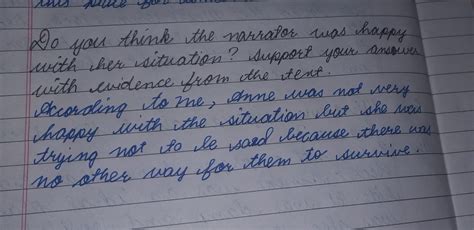 this place for
Do you think the narrator was happy
with her situation? Support your answer
with evidence from the text.
According to me, Anne was not very
happy with the situation but she was
trying not to be sad because there was
no other way for them to survive.